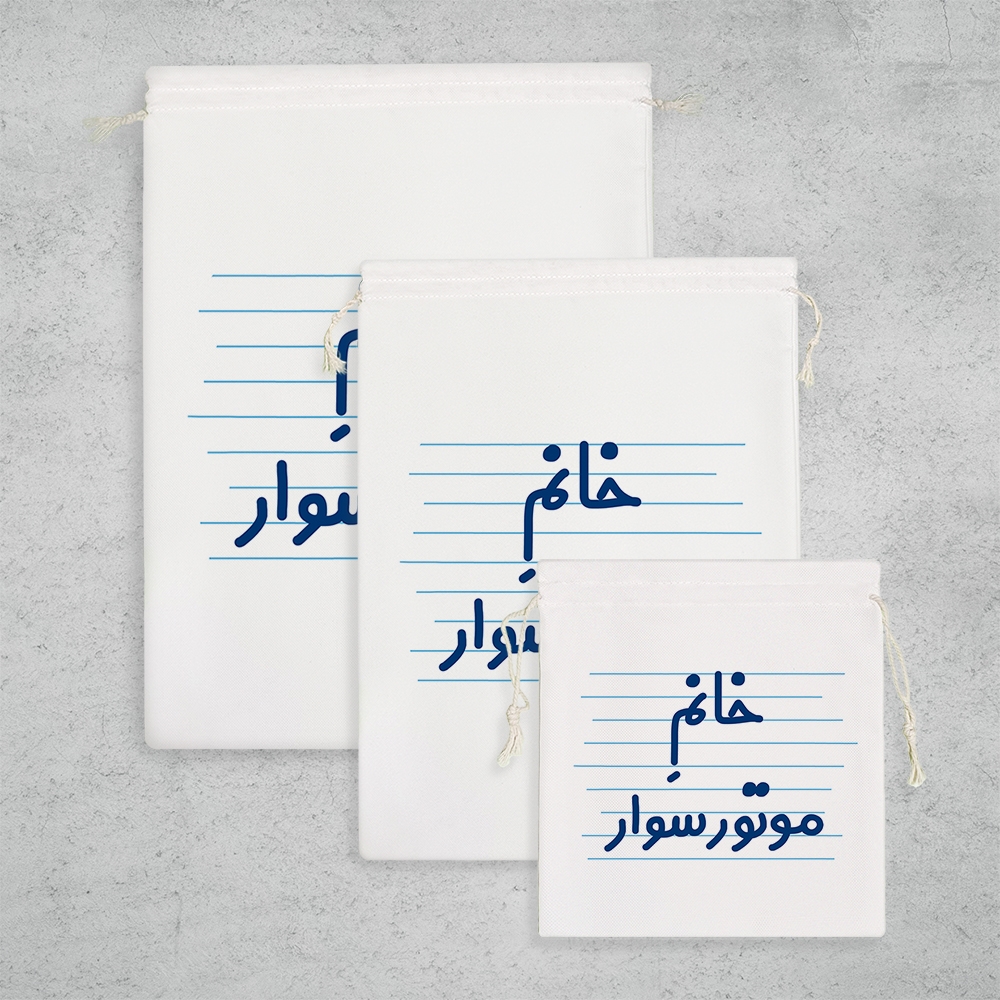 سوار
خانمِ
سوار
خانمِ
موتور سوار